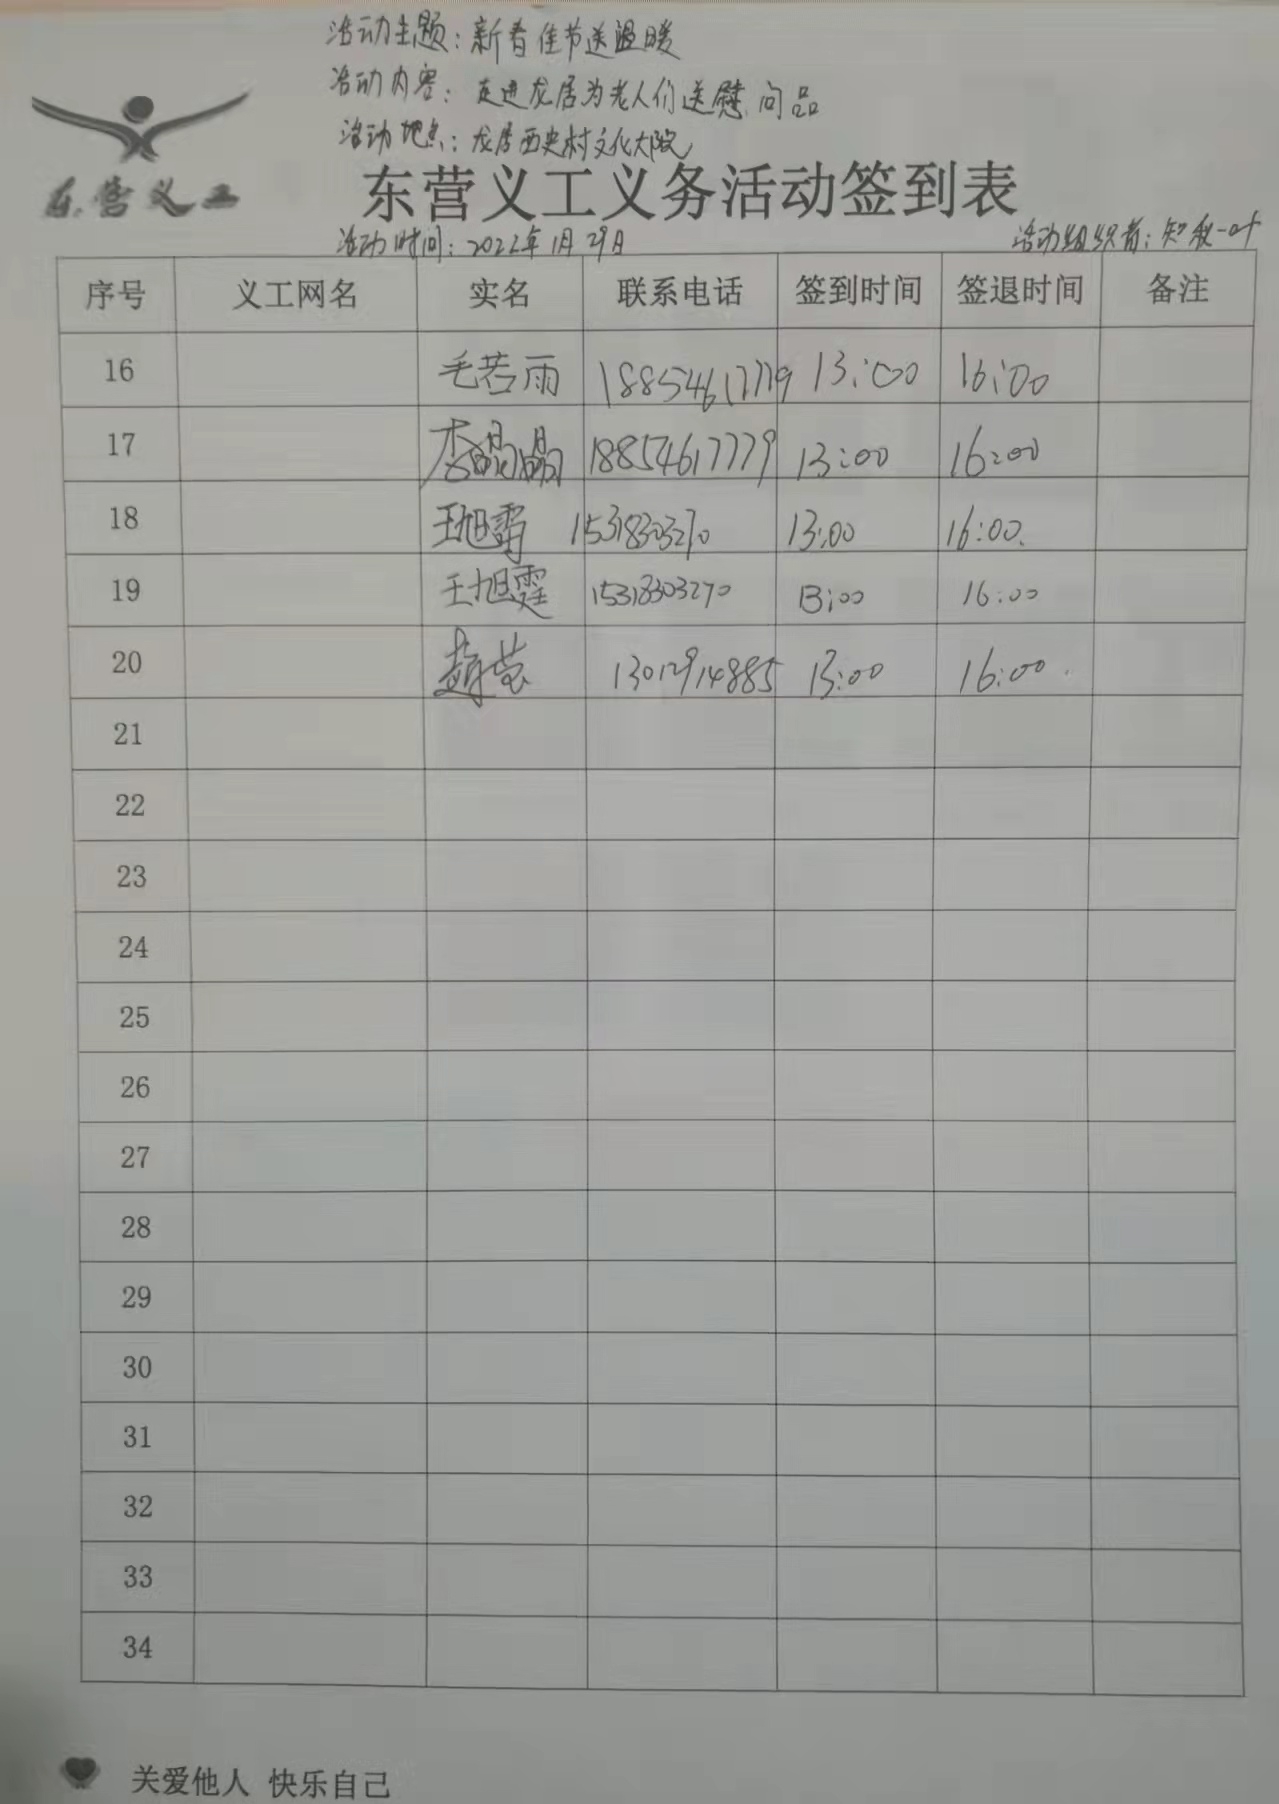 活动主题：新春佳节送温暖
活动内容：走进龙居为老人们送慰问品
活动地点：龙居西史村文化大院
东营义工
东营义工义务活动签到表
活动时间：2022年1月29日 活动组织者：知秋一叶
序号 义工网名 实名 联系电话 签到时间 签退时间 备注
16 毛若雨 18854617779 13:00 16:00
17 李晶晶 18854617779 13:00 16:00
18 王旭 15318303270 13:00 16:00
19 王旭霆 15318303270 13:00 16:00
20 赵莹 13012914885 13:00 16:00
21
22
23
24
25
26
27
28
29
30
31
32
33
34
关爱他人 快乐自己